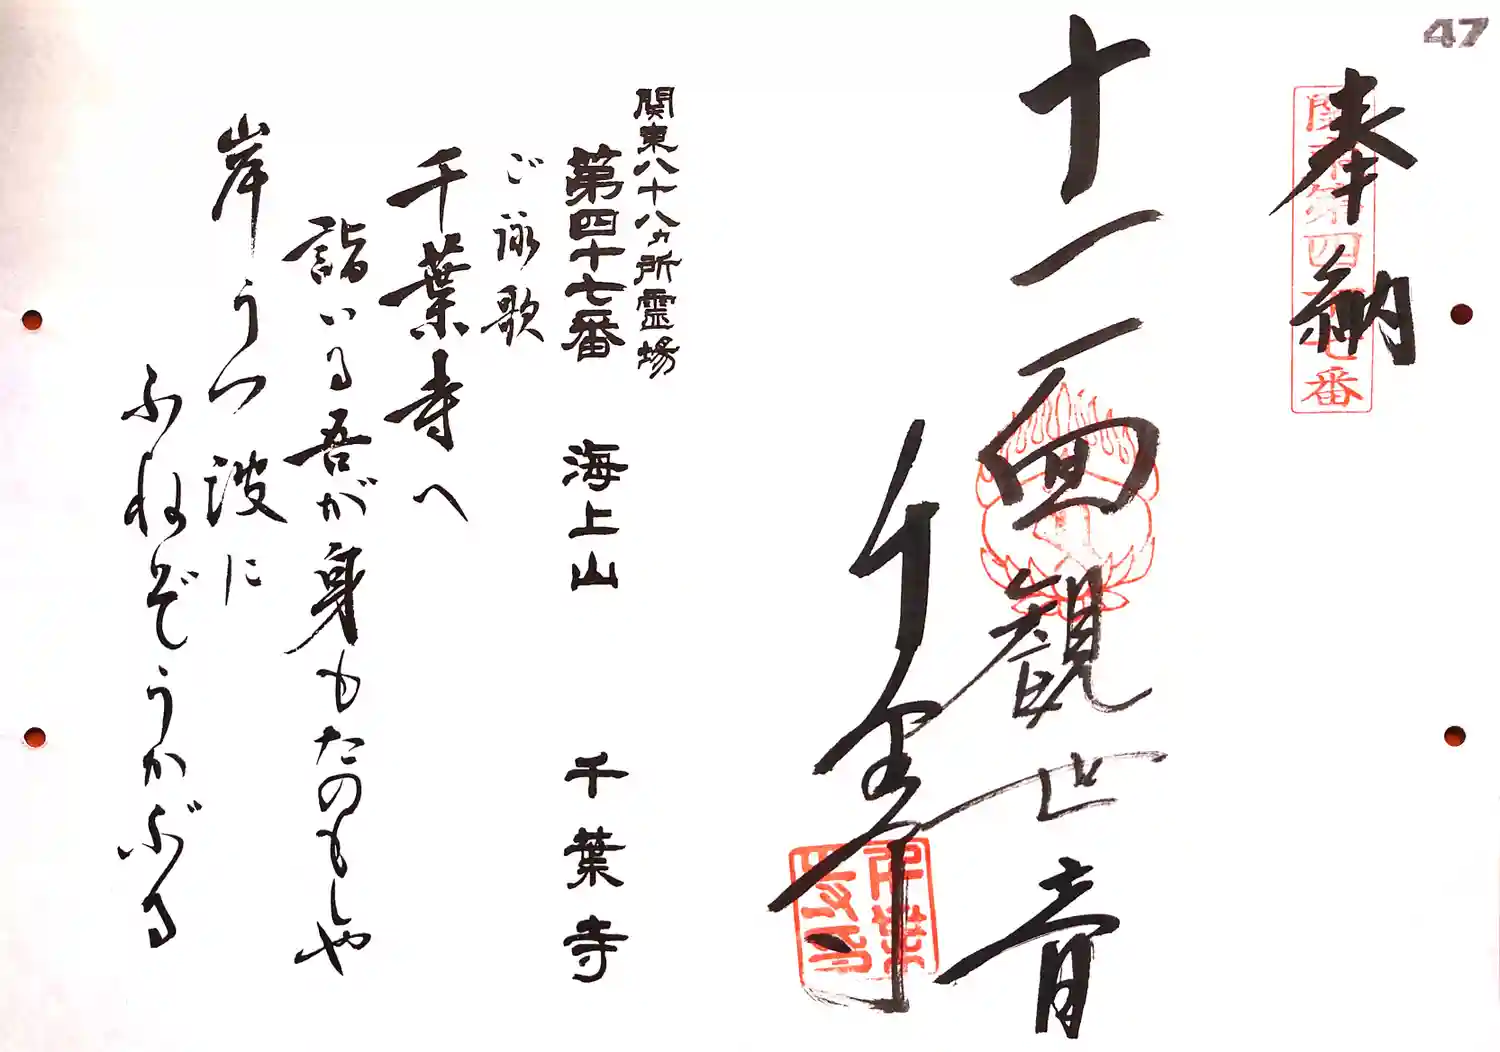 47
奉納
関東第四十七番
十一面観世音
千葉寺
関東八十八ヵ所霊場
第四十七番 海上山 千葉寺
ご詠歌
千葉寺へ
詣いる吾が身もたのもしや
岸うつ波に
ふねぞうかぶる